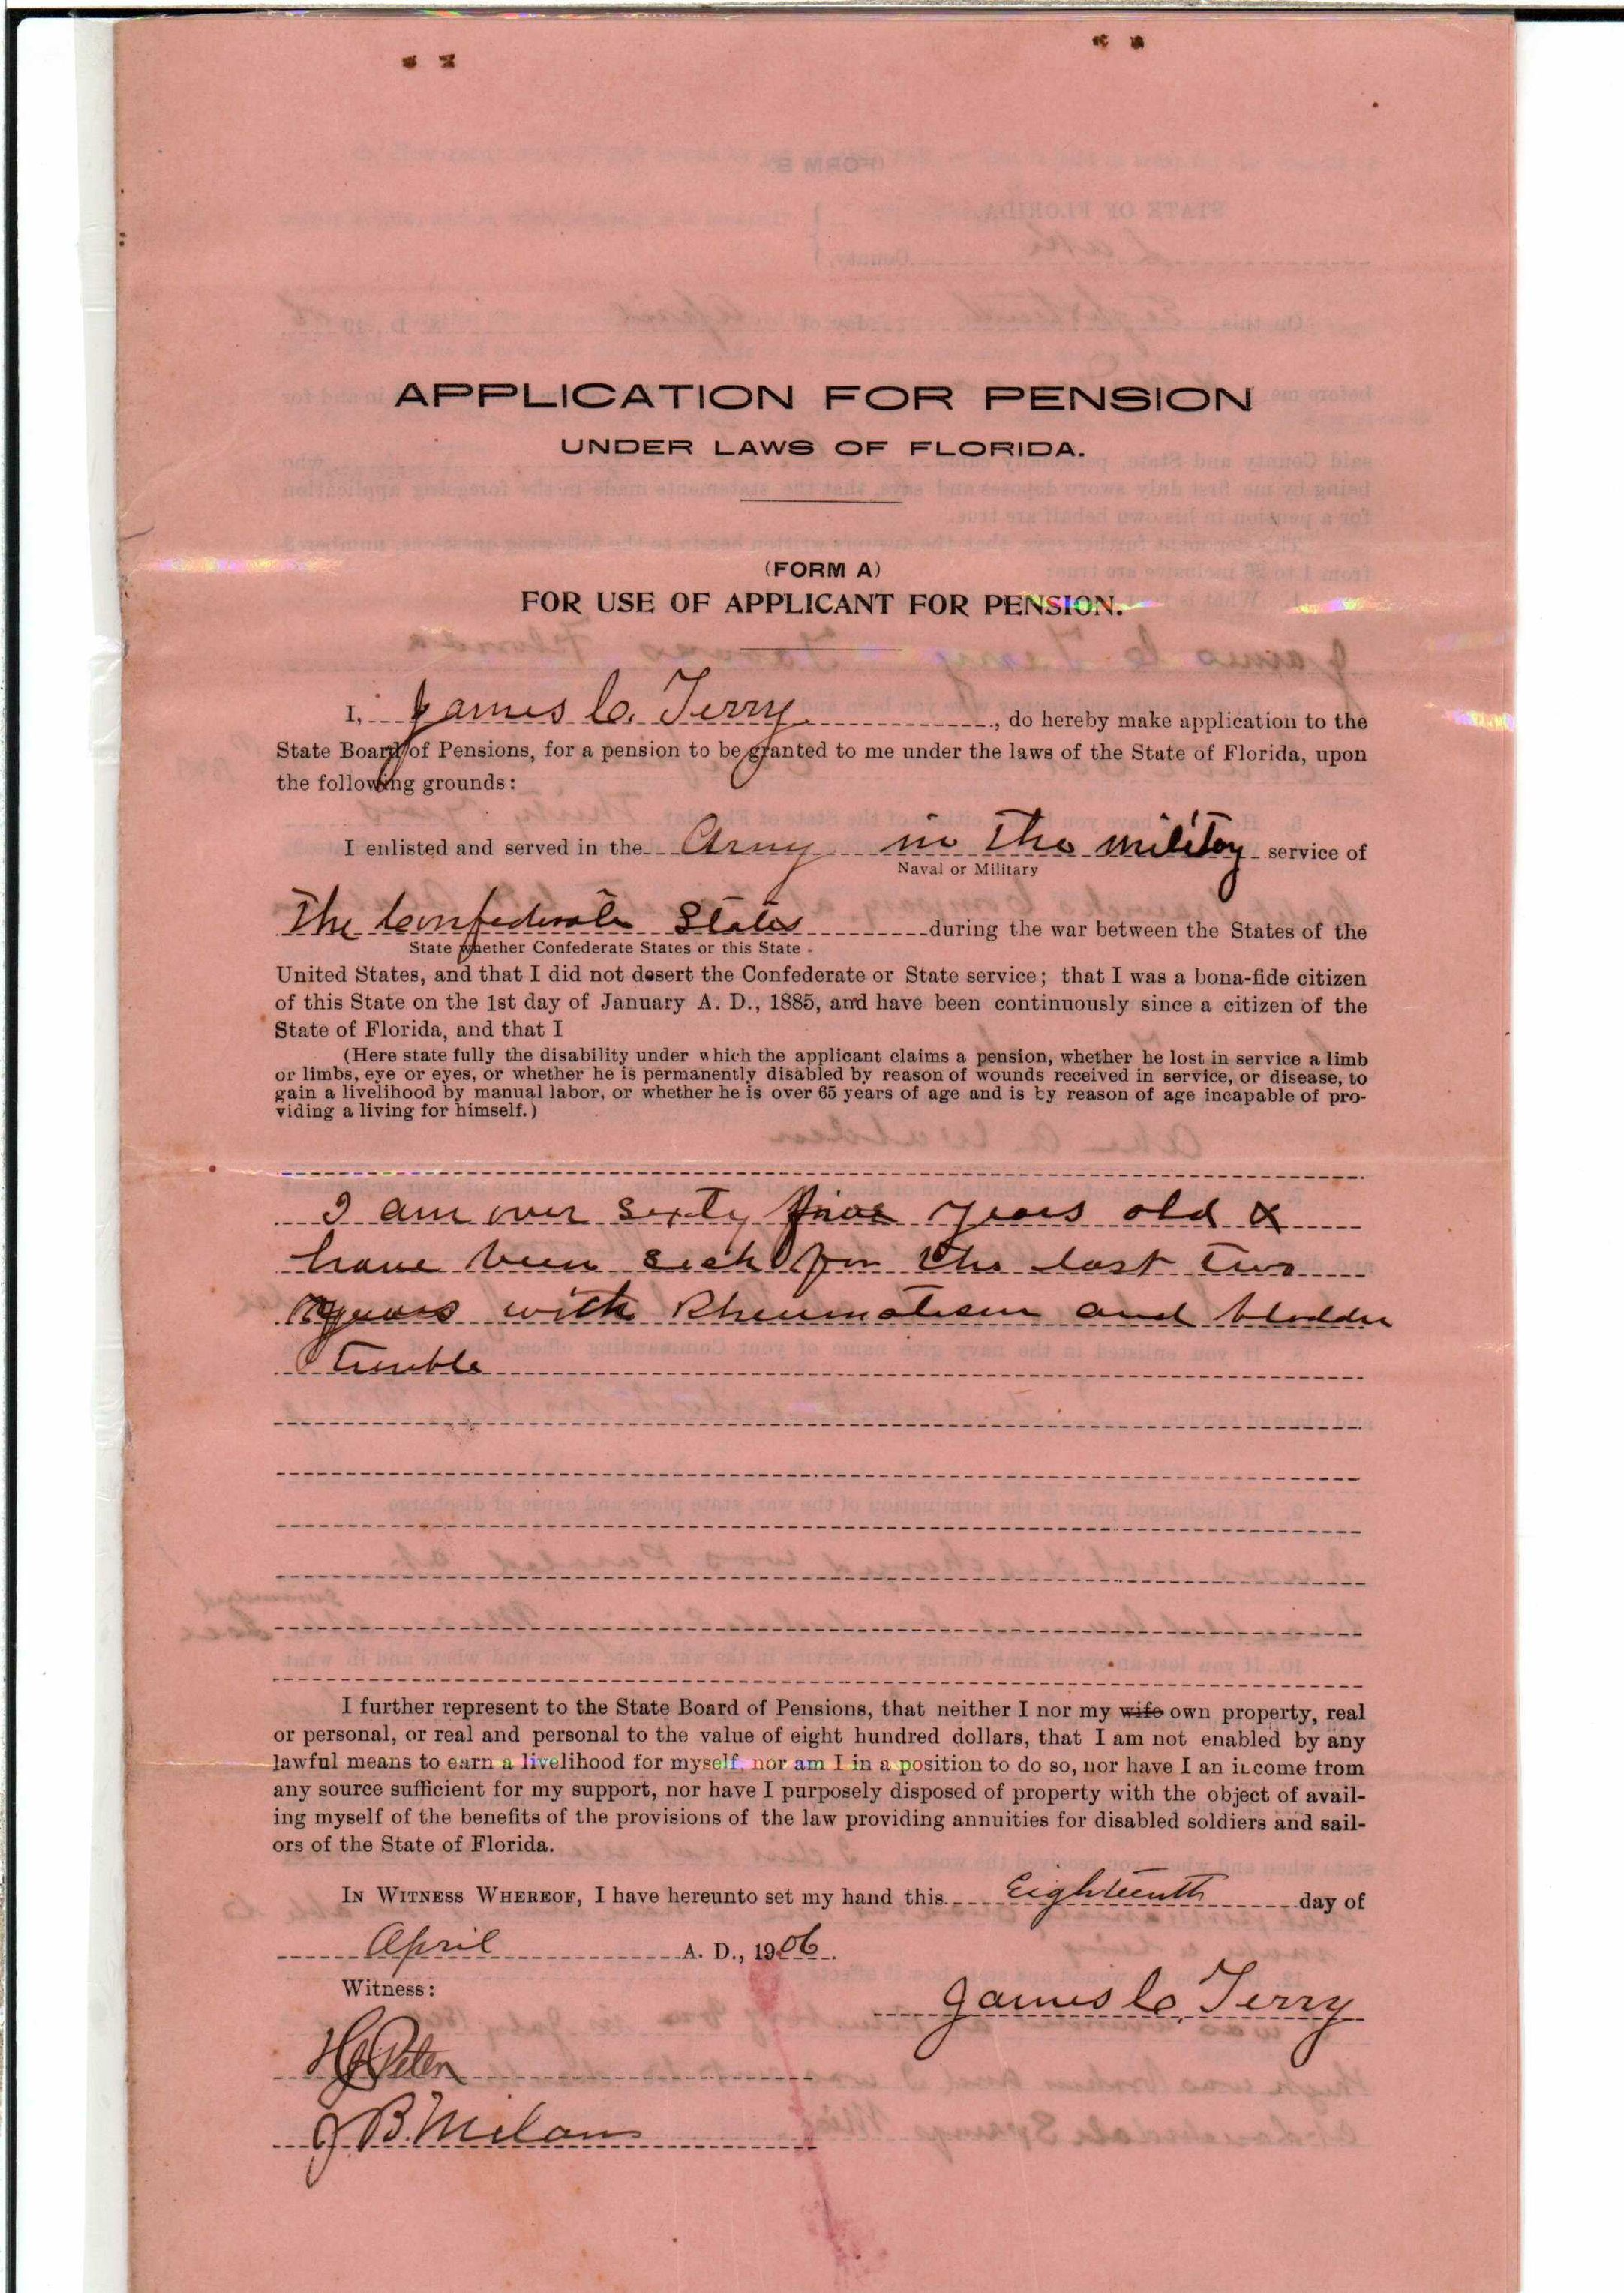 APPLICATION FOR PENSION
UNDER LAWS OF FLORIDA.
(FORM A)
FOR USE OF APPLICANT FOR PENSION.
I, James C. Terry, do hereby make application to the
State Board of Pensions, for a pension to be granted to me under the laws of the State of Florida, upon
the following grounds:
I enlisted and served in the Army in The military service of
Naval or Military
The Confederate States during the war between the States of the
State whether Confederate States or this State
United States, and that I did not desert the Confederate or State service; that I was a bona-fide citizen
of this State on the 1st day of January A. D., 1885, and have been continuously since a citizen of the
State of Florida, and that I
(Here state fully the disability under which the applicant claims a pension, whether he lost in service a limb
or limbs, eye or eyes, or whether he is permanently disabled by reason of wounds received in service, or disease, to
gain a livelihood by manual labor, or whether he is over 65 years of age and is by reason of age incapable of pro-
viding a living for himself.)
I am over sixty five years old &
have been sick for the last two
years with Rheumatism and bladder
trouble
I further represent to the State Board of Pensions, that neither I nor my wife own property, real
or personal, or real and personal to the value of eight hundred dollars, that I am not enabled by any
lawful means to earn a livelihood for myself, nor am I in a position to do so, nor have I an income from
any source sufficient for my support, nor have I purposely disposed of property with the object of avail-
ing myself of the benefits of the provisions of the law providing annuities for disabled soldiers and sail-
ors of the State of Florida.
IN WITNESS WHEREOF, I have hereunto set my hand this Eighteenth day of
April A. D., 1906.
Witness:
James C. Terry
J B. Milam